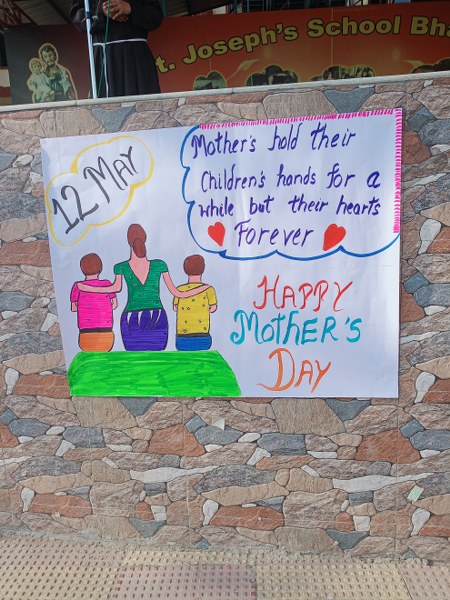 t. Joseph's School Bha
12 MAY
Mother's hold their
Children's hands for a
while but their hearts
Forever
HAPPY
MotHER'S
DAY